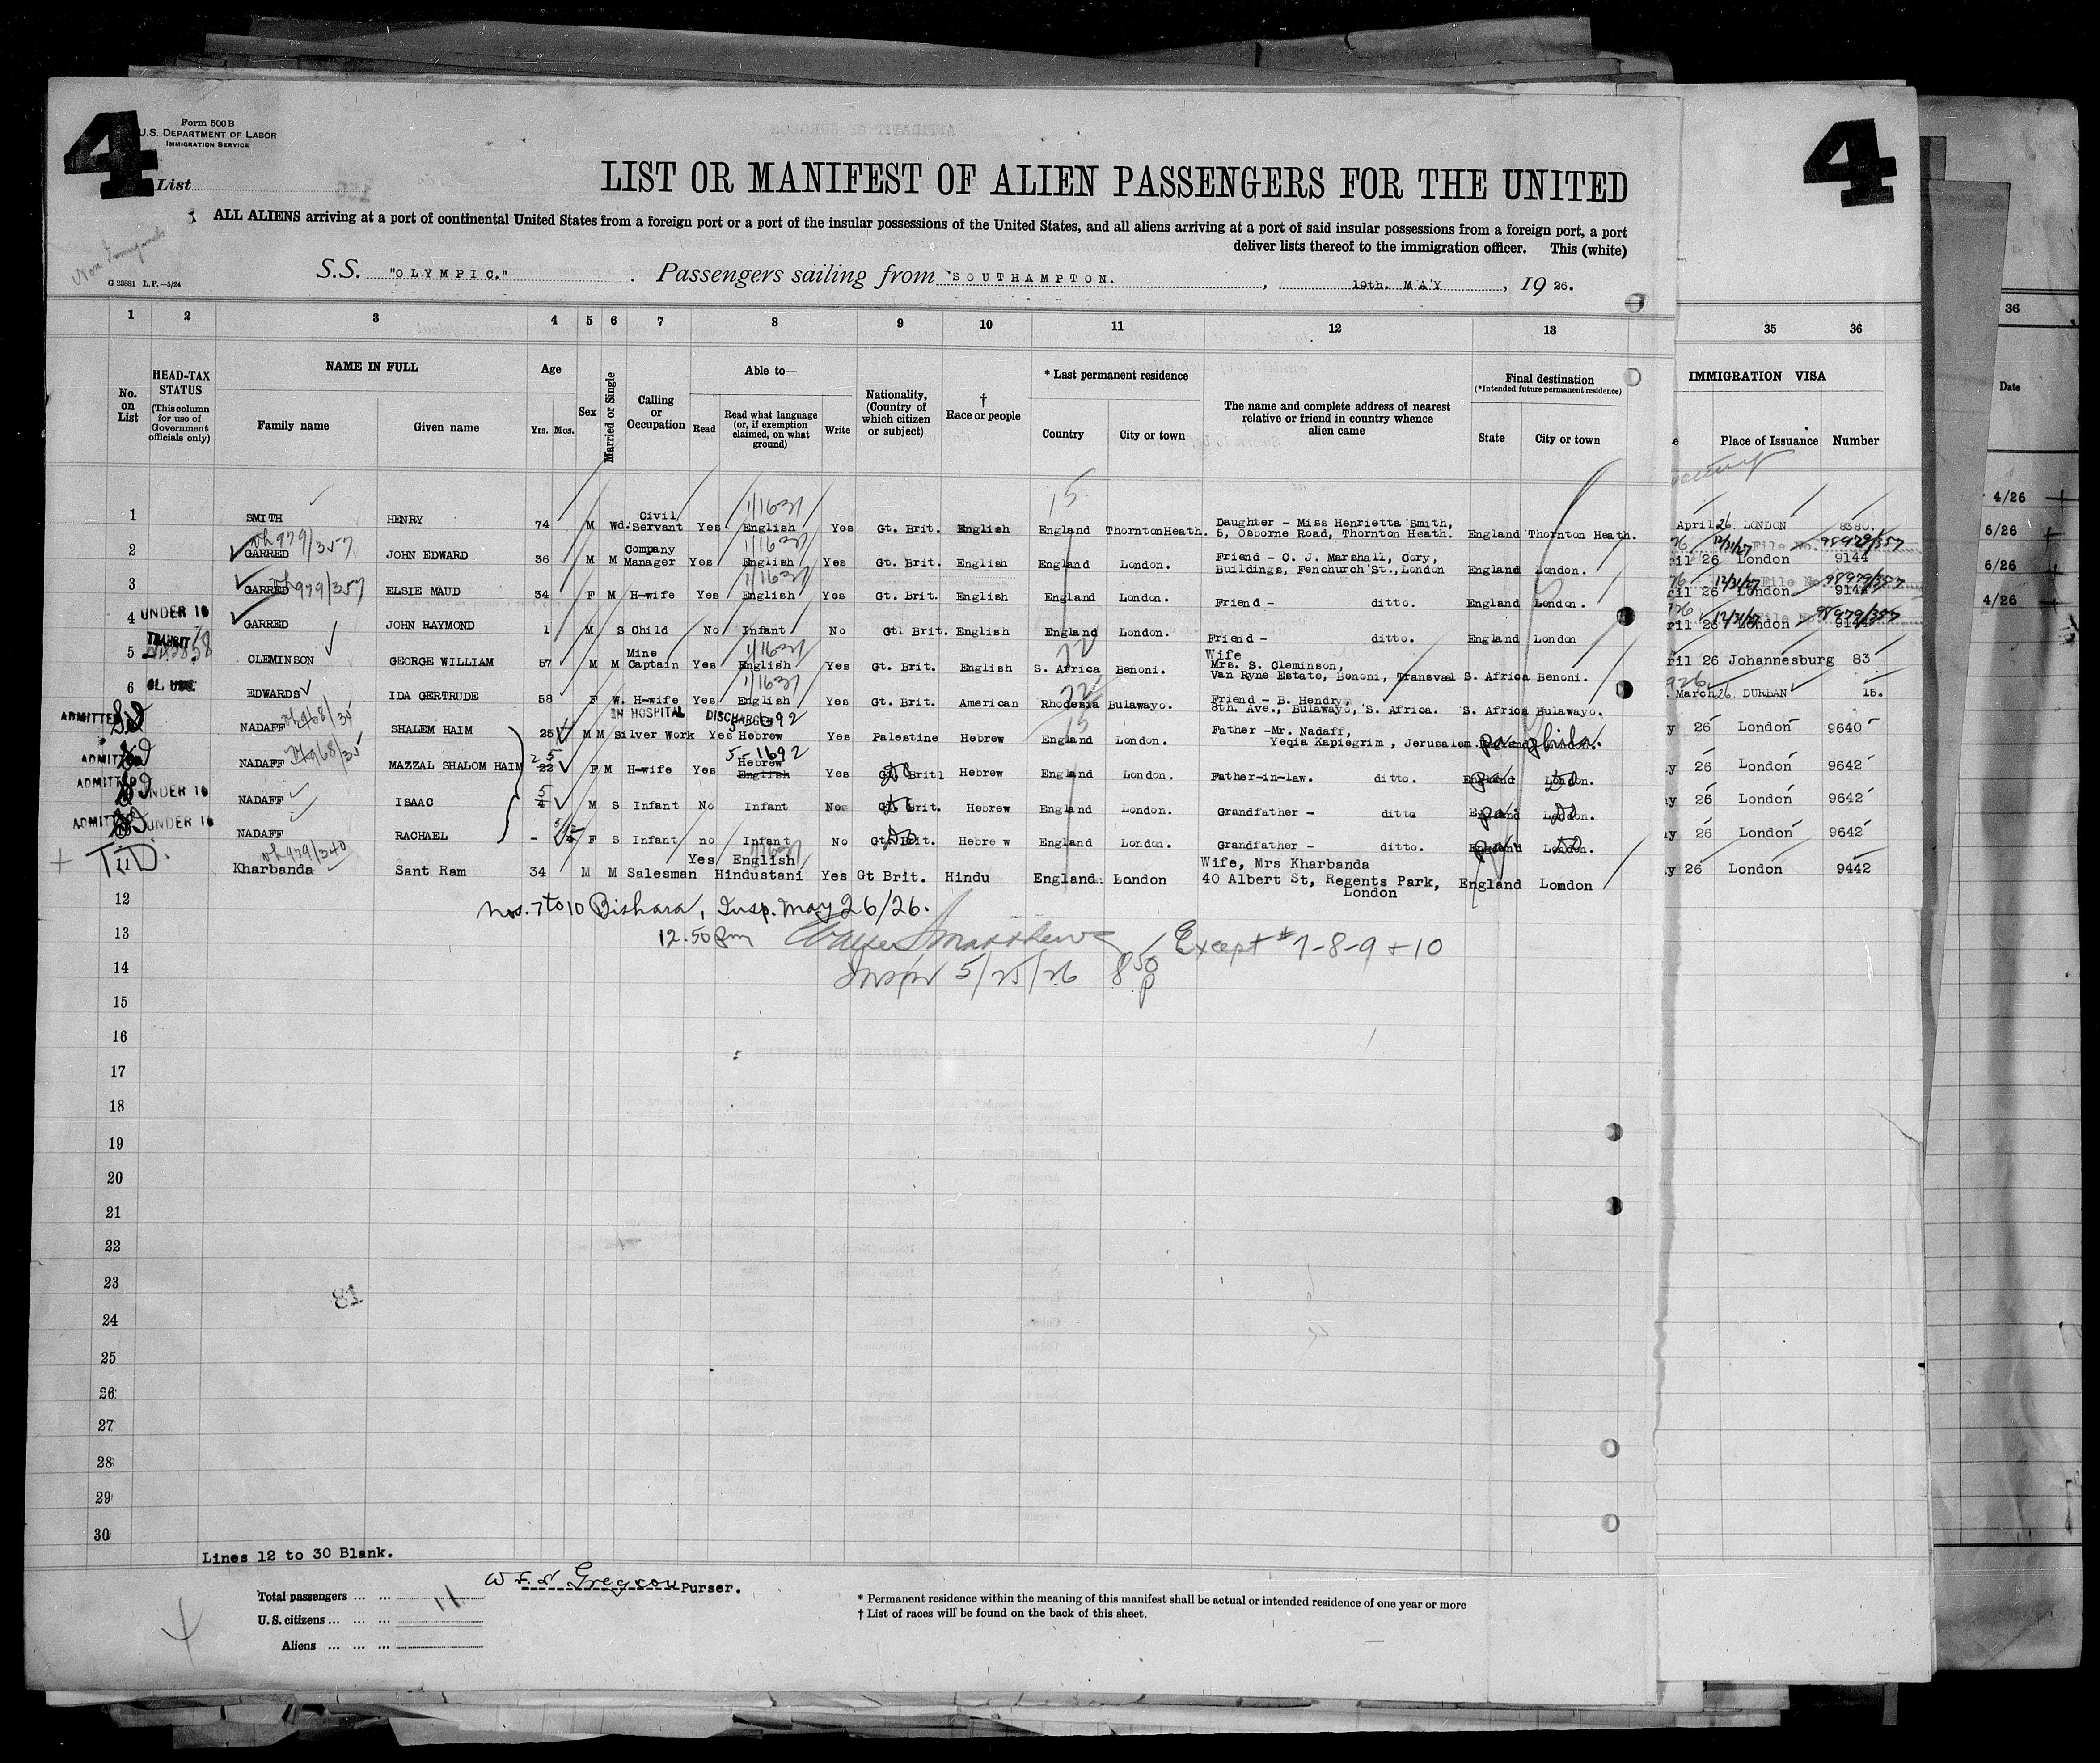 4
Form 500 B
U.S. DEPARTMENT OF LABOR
IMMIGRATION SERVICE
List
4
LIST OR MANIFEST OF ALIEN PASSENGERS FOR THE UNITED
ALL ALIENS arriving at a port of continental United States from a foreign port or a port of the insular possessions of the United States, and all aliens arriving at a port of said insular possessions from a foreign port, a port
deliver lists thereof to the immigration officer. This (white)
Non Immigrants
G 23881 L.P.—5/24
S.S. "OLYMPIC." Passengers sailing from SOUTHAMPTON. , 19th. MAY , 19 26.
1 2 3 4 5 6 7 8 9 10 11 12 13 35 36 36
No. on List
HEAD-TAX STATUS (This column for use of Government officials only)
NAME IN FULL
Family name Given name
Age
Yrs. Mos.
Sex
Married or Single
Calling or Occupation
Able to—
Read Read what language (or, if exemption claimed, on what ground) Write
Nationality, (Country of which citizen or subject)
† Race or people
* Last permanent residence
Country City or town
The name and complete address of nearest relative or friend in country whence alien came
Final destination
(*Intended future permanent residence)
State City or town
IMMIGRATION VISA
Place of Issuance Number
Date
15
1/1637
1 SMITH HENRY 74 M Wd. Civil Servant Yes English Yes Gt. Brit. English England Thornton Heath. Daughter - Miss Henrietta Smith, 5, Osborne Road, Thornton Heath. England Thornton Heath. April 26 LONDON 8380. 4/26
979/357 1/1637 12/31/27 File No. 98979/357
2 GARRED JOHN EDWARD 36 M M Company Manager Yes English Yes Gt. Brit. English England London. Friend - C. J. Marshall, Cory, Buildings, Fenchurch St., London England London. ril 26 London 9144 6/26
979/357 1/1637 12/31/27 File No. 98979/357
3 GARRED ELSIE MAUD 34 F M H-wife Yes English Yes Gt. Brit. English England London. Friend - ditto. England London. ril 26 London 9144 6/26
UNDER 16 12/31/27 File No. 98979/357
4 GARRED JOHN RAYMOND 1 M S Child No Infant No Gt. Brit. English England London. Friend - ditto. England London ril 26 London 9144 4/26
TRANSIT 1/1637 22
5 CLEMINSON GEORGE WILLIAM 57 M M Mine Captain Yes English Yes Gt. Brit. English S. Africa Benoni. Wife Mrs. S. Cleminson, Van Ryne Estate, Benoni, Transvael S. Africa Benoni. ril 26 Johannesburg 83
1/1637 22
6 EDWARDS IDA GERTRUDE 58 F W. H-wife Yes English Yes Gt. Brit. American Rhodesia Bulawayo. Friend - B. Hendry, 8th. Ave., Bulawayo, S. Africa. S. Africa Bulawayo. March 26 DURBAN 15.
ADMITTED 968/35 IN HOSPITAL DISCHARGED 5-1692 15
NADAFF SHALEM HAIM 25 M M Silver Work Yes Hebrew Yes Palestine Hebrew England London. Father -Mr. Nadaff, Yeqia Kapiegrim, Jerusalem. pa phila. y 26 London 9640
ADMITTED 968/35 5-1692
NADAFF MAZZAL SHALOM HAIM 25 22 F M H-wife Yes Hebrew English Yes Gt. Brit Hebrew England London. Father-in-law. ditto. England pa London. do y 26 London 9642
ADMITTED UNDER 16
NADAFF ISAAC 5 4 M S Infant No Infant No Gt. Brit. Hebrew England London. Grandfather - ditto England pa London. do y 26 London 9642
ADMITTED UNDER 16
NADAFF RACHAEL - F S Infant no Infant No Gt. Brit. Hebrew England London. Grandfather - ditto. England pa London. do y 26 London 9642
979/340 1/1637
Kharbanda Sant Ram 34 M M Salesman Yes English Hindustani Yes Gt Brit. Hindu England London Wife, Mrs Kharbanda 40 Albert St, Regents Park, London England London y 26 London 9442
12 Nos. 7 to 10 Bishara, Insp. May 26/26.
13 12.50 pm Walter J Matthews Except # 7-8-9 + 10
14 Inspr 5/25/26 8 50 p
15
16
17
18
19
20
21
22
23
81
24
25
26
27
28
29
30
Lines 12 to 30 Blank.
Gregson Purser.
Total passengers ... ... 11
U.S. citizens ... ... ...
Aliens ... ... ...
* Permanent residence within the meaning of this manifest shall be actual or intended residence of one year or more
† List of races will be found on the back of this sheet.